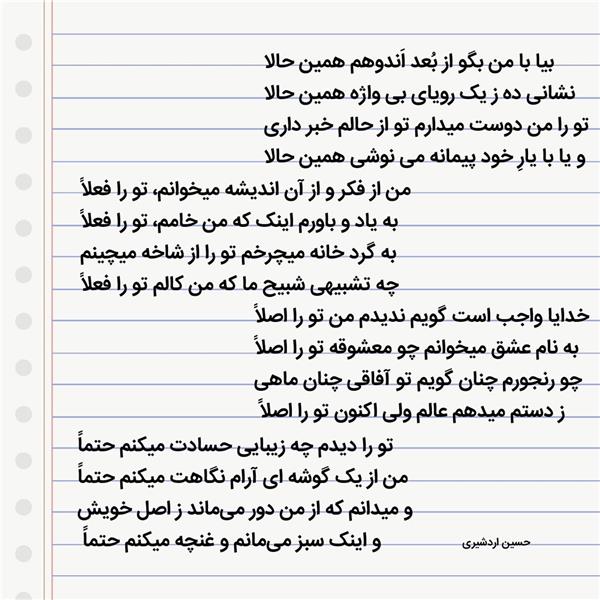 بیا با من بگو از بُعد اَندوهم همین حالا
نشانی ده ز یک رویای بی واژه همین حالا
تو را من دوست میدارم تو از حالم خبر داری
و یا با یارِ خود پیمانه می نوشی همین حالا
من از فکر و از آن اندیشه میخوانم، تو را فعلاً
به یاد و باورم اینک که من خامم، تو را فعلاً
به گرد خانه میچرخم تو را از شاخه میچینم
چه تشبیهی شبیح ما که من کالم تو را فعلاً
خدایا واجب است گویم ندیدم من تو را اصلاً
به نام عشق میخوانم چو معشوقه تو را اصلاً
چو رنجورم چنان گویم تو آفاقی چنان ماهی
ز دستم میدهم عالم ولی اکنون تو را اصلاً
تو را دیدم چه زیبایی حسادت میکنم حتماً
من از یک گوشه ای آرام نگاهت میکنم حتماً
و میدانم که از من دور می‌ماند ز اصل خویش
و اینک سبز می‌مانم و غنچه میکنم حتماً
حسین اردشیری